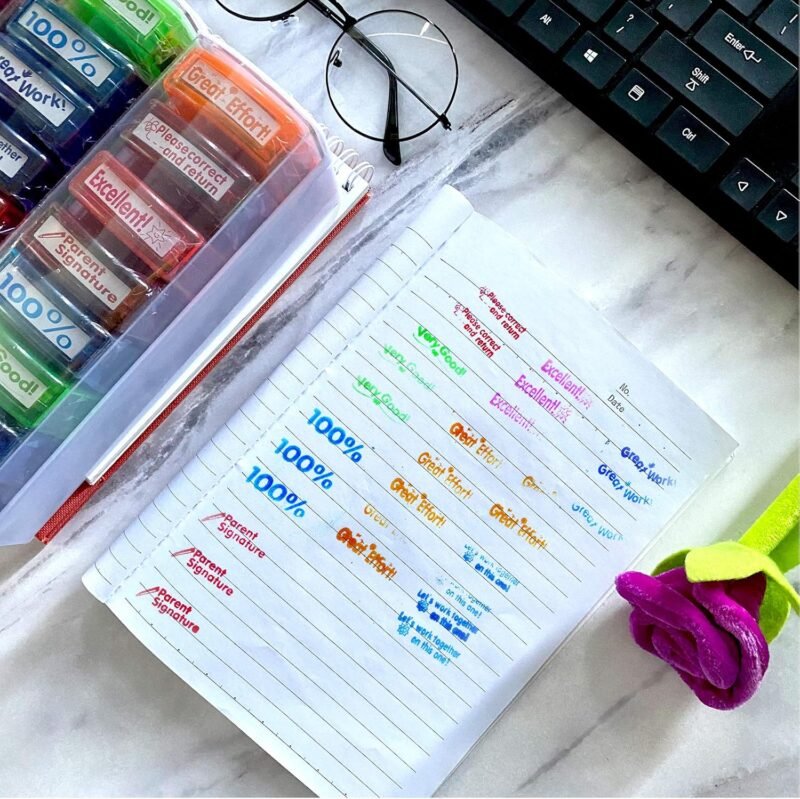 Good!
100%
Great Work!
Together
Great Effort!
Please correct
and return
Excellent!
Parent
Signature
100%
Good!
Alt
?
/
Enter
Shift
Ctrl
Please correct
and return
Please correct
and return
Very Good!
Very Good!
Very Good!
Excellent!
Excellent!
Excellent!
No.
Date
100%
100%
100%
Great Effort!
Great Effort!
Great
Great Effort!
Great Effort!
Great Effort!
Great Work!
Great Work!
Great Work
Parent
Signature
Parent
Signature
Parent
Signature
Let's work together
on this one!
together
on this one!
Let's work together
on this one!
Let's work together
on this one!